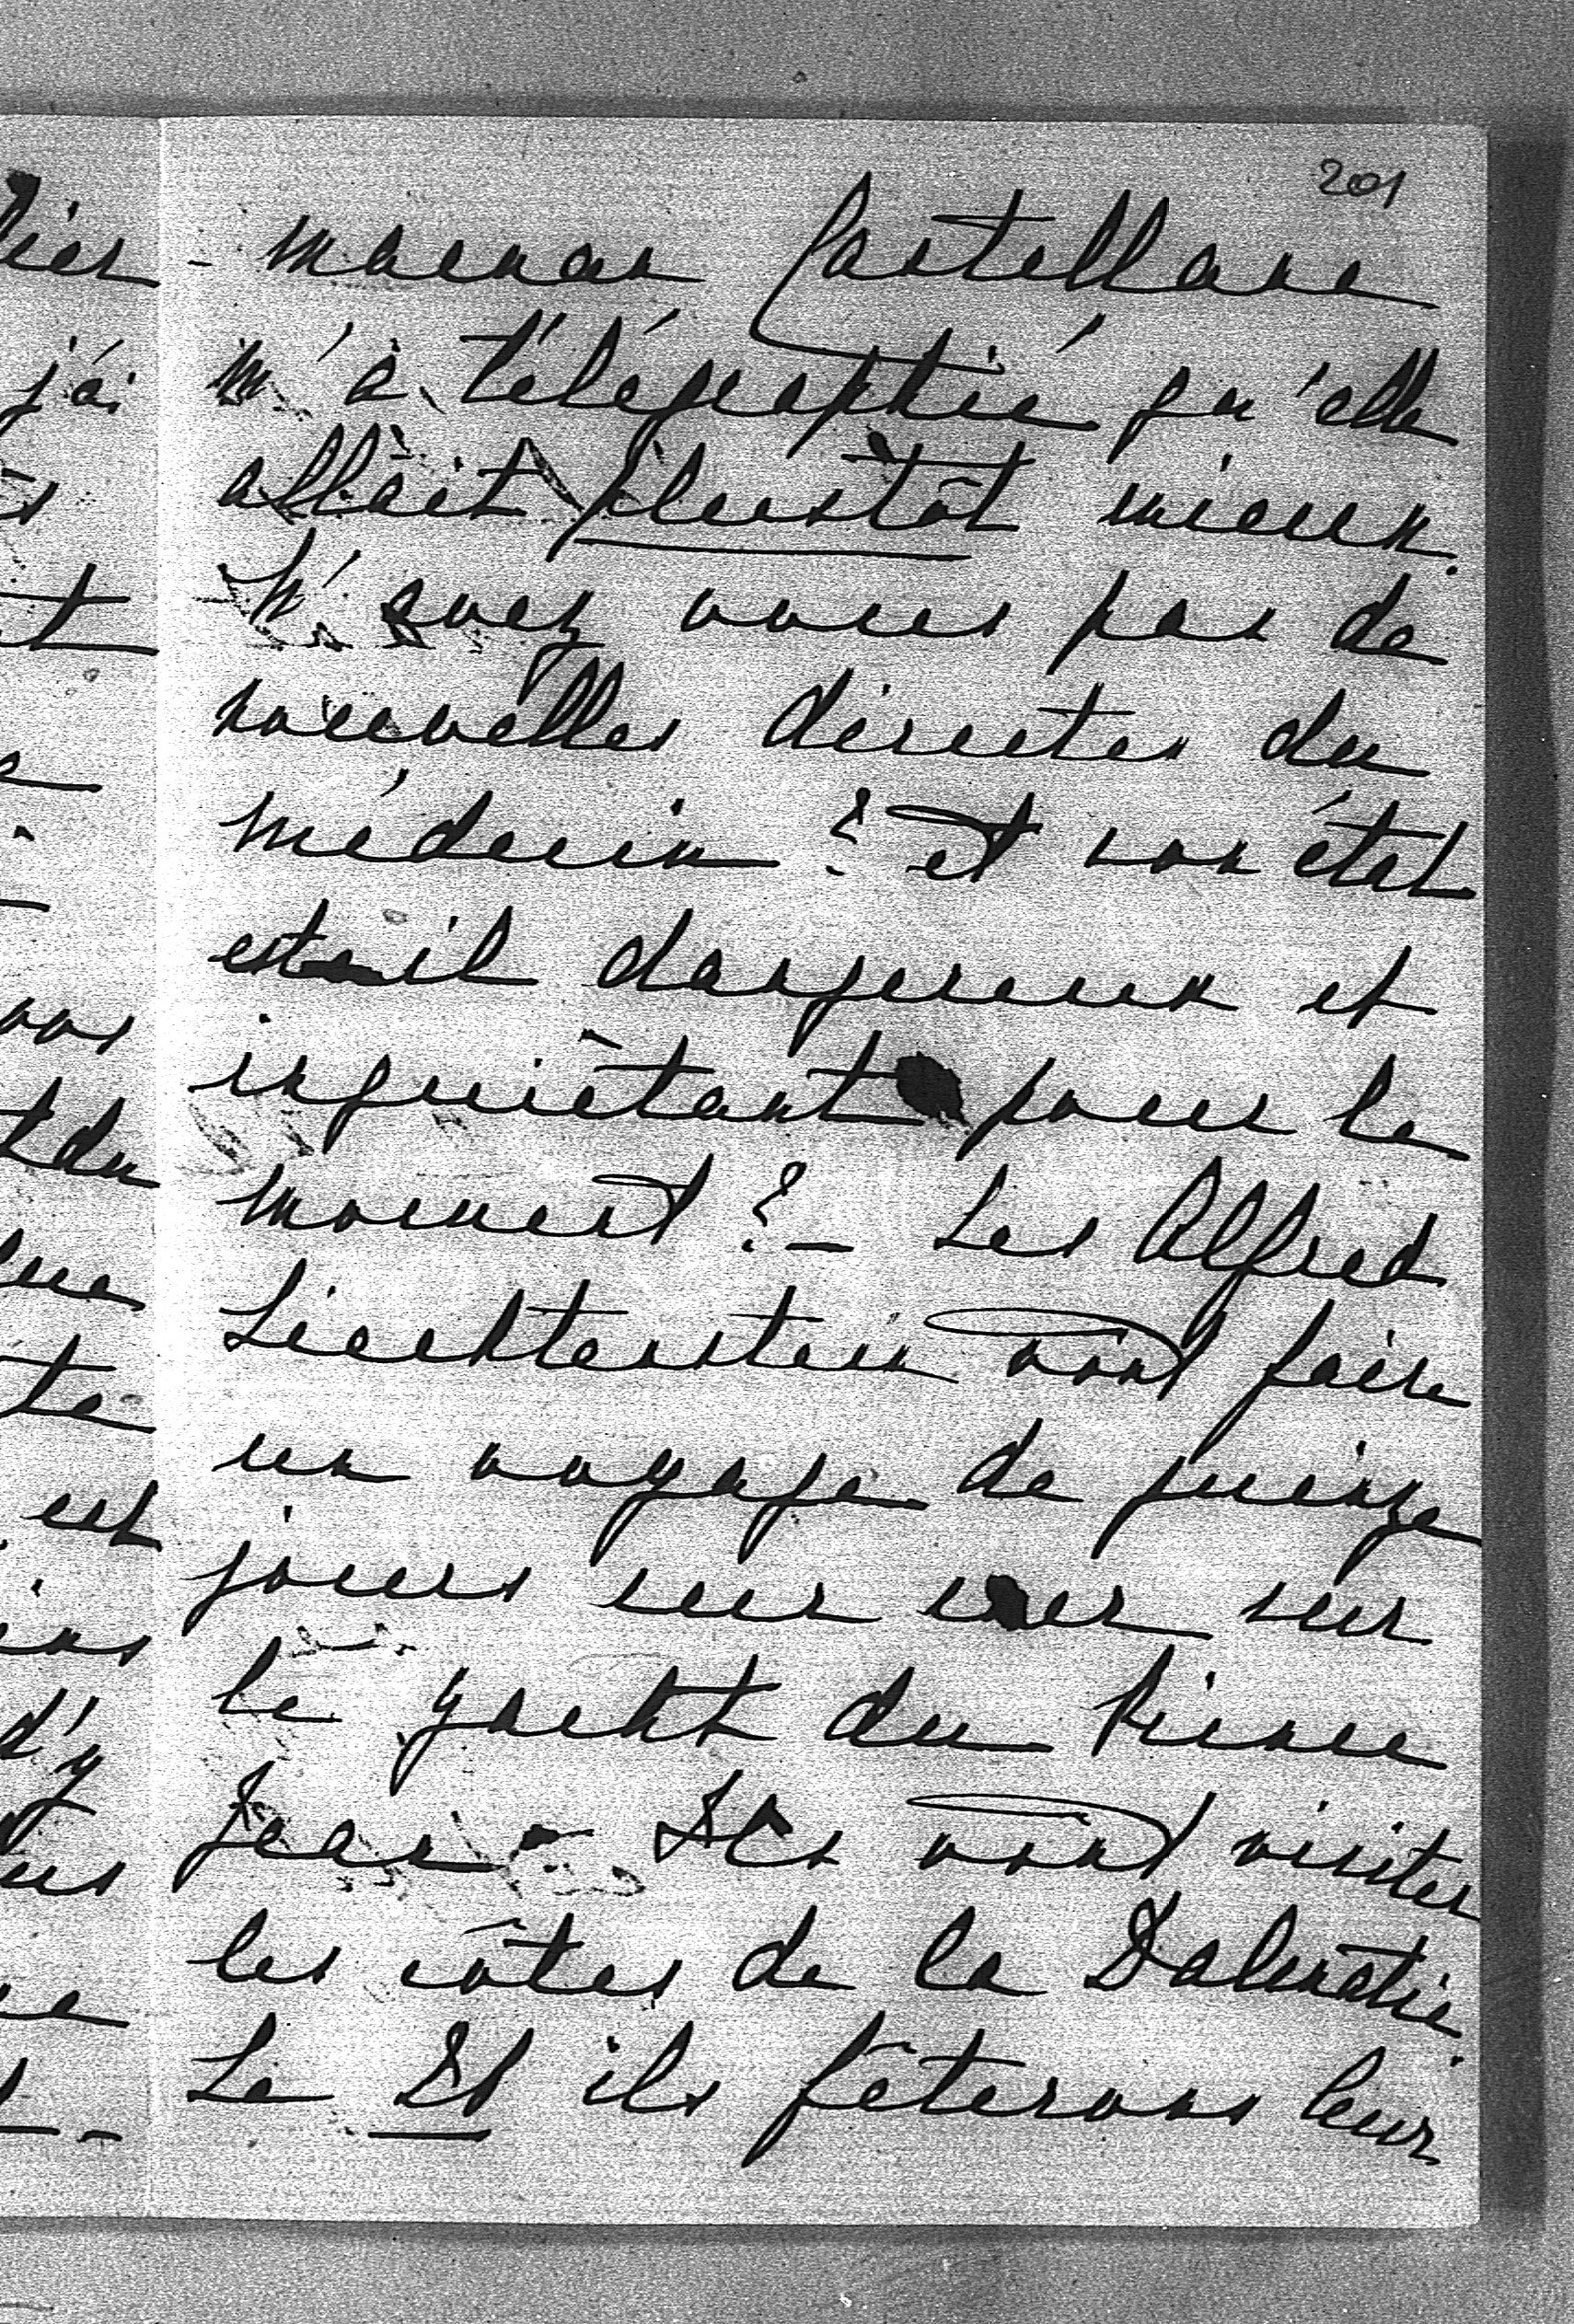 201
maman Castellane
m'à télégraphié qu'elle
allait plustôt mieux.
N'avez vous pas de
nouvelles directes du
médecin ? et son état
est-il dangereux et
inquiètant pour le
moment ? - Les Alfred
Liechtenstein vont faire
un voyage de quinze
jours sur mer sur
le yacht du Prince
Jean - Ils vont visiter
les côtes de la Dalmatie.
Le ils fêterons leur